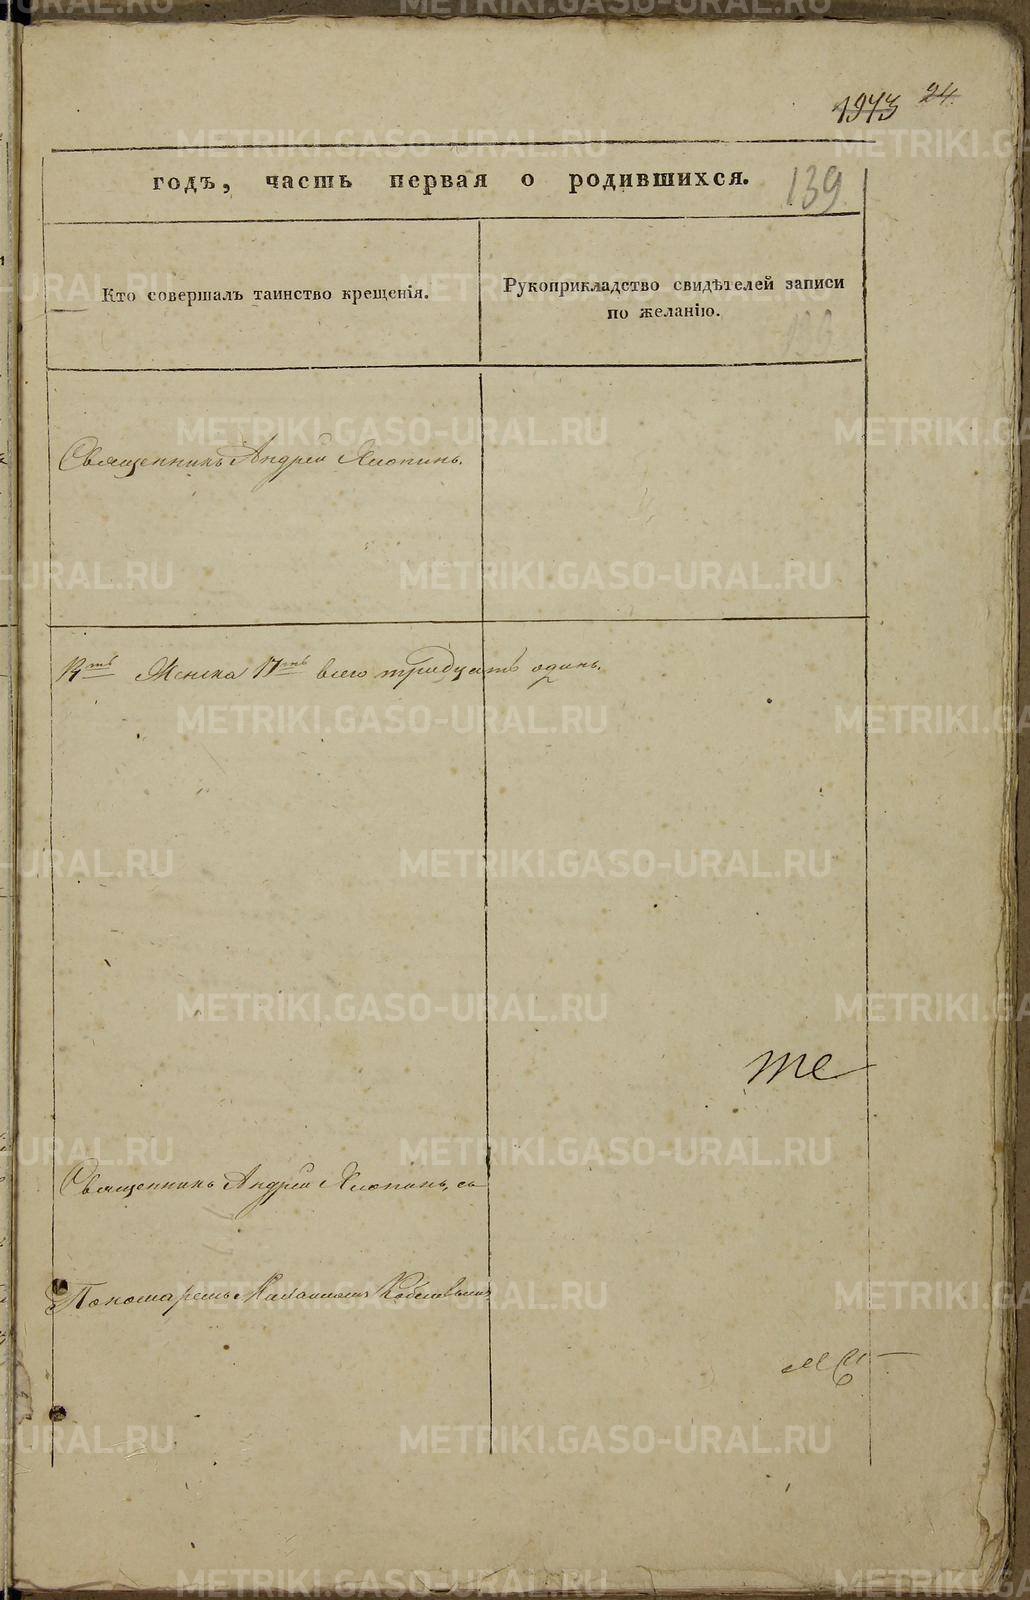 1943 24.
годъ, часть первая о родившихся.
139
Кто совершалъ таинство крещенія.
Рукоприкладство свидѣтелей записи
по желанію.
Священникъ Андрей Хлопинъ.
14ть Женска 17ть всего тридцать одинъ.
те
Священникъ Андрей Хлопинъ, съ
Пономаремъ
METRIKI.GASO-URAL.RU